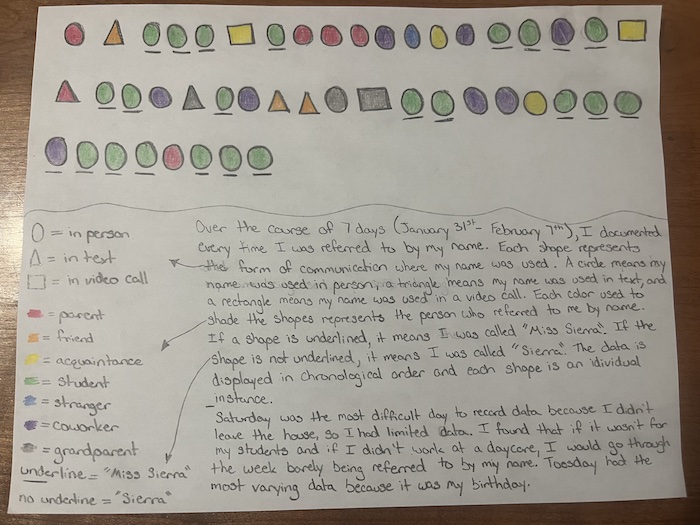 = in person
= in text
= in video call
= parent
= friend
= acquaintance
= student
= stranger
= coworker
= grandparent
underline = "Miss Sierra"
no underline = "Sierra"
Over the course of 7 days (January 31st - February 7th), I documented
every time I was referred to by my name. Each shape represents
the form of communication where my name was used. A circle means my
name was used in person, a triangle means my name was used in text, and
a rectangle means my name was used in a video call. Each color used to
shade the shapes represents the person who referred to me by name.
If a shape is underlined, it means I was called "Miss Sierra". If the
shape is not underlined, it means I was called "Sierra". The data is
displayed in chronological order and each shape is an idividual
instance.
Saturday was the most difficult day to record data because I didn't
leave the house, so I had limited data. I found that if it wasn't for
my students and if I didn't work at a daycare, I would go through
the week barely being referred to by my name. Tuesday had the
most varying data because it was my birthday.